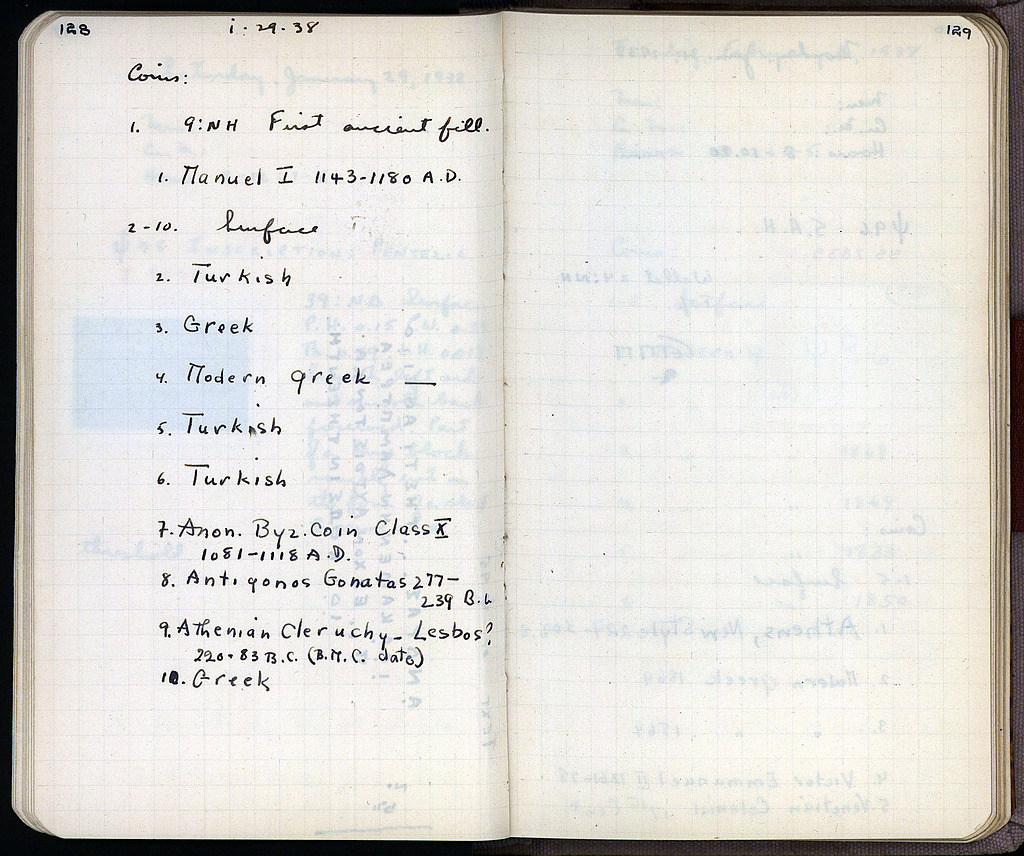 128
i·29·38
129
Coins:
1. 9:NH First ancient fill.
1. Manuel I 1143-1180 A.D.
2-10. Surface
2. Turkish
3. Greek
4. Modern greek —
5. Turkish
6. Turkish
7. Anon. Byz. Coin Class X
1081-1118 A.D.
8. Antigonos Gonatas 277-
239 B.C.
9. Athenian Cleruchy - Lesbos?
220-83 B.C. (B.M.C. date)
10. Greek